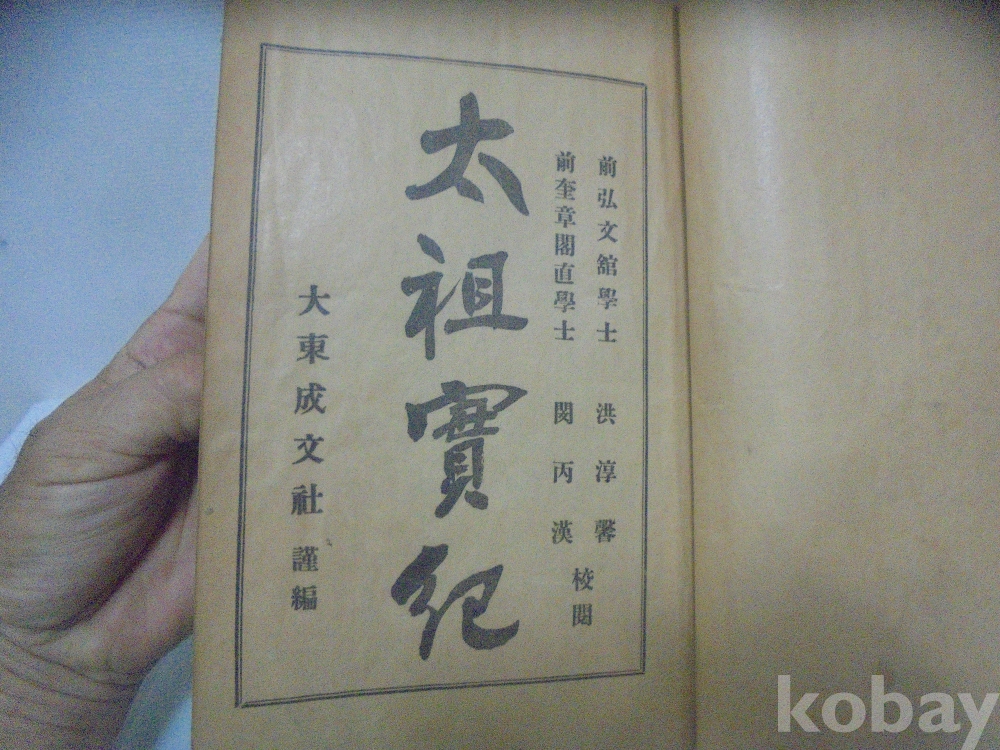 前弘文舘學士 洪淳馨
前奎章閣直學士 閔丙漢
校閱
太祖實紀
大東成文社 謹編
kobay